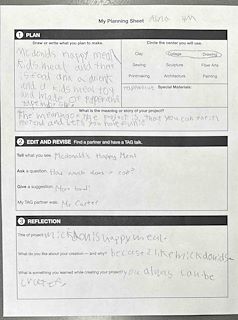 My Planning Sheet
1 PLAN
Draw or write what you plan to make.
Circle the center you will use.
Mcdonlds Happy meal
kids meal
food and a drink
and a kids meal toy
and made
Clay Collage Drawing
Sewing Sculpture Fiber Arts
Printmaking Architecture Painting
Special Materials:
What is the meaning or story of your project?
The meaning of the project is that you can eat it
and lets you have fun
2 EDIT AND REVISE Find a partner and have a TAG talk.
Tell what you see. Mcdonald's Happy Meal
Ask a question. How much does it cost?
Give a suggestion. More food!
My TAG partner was: Mr Carter
3 REFLECTION
Title of project mickdonishappymeal
What do you like about your creation — and why? becaseIlikemickdonids
What is something you learned while creating your project? you alwas can be